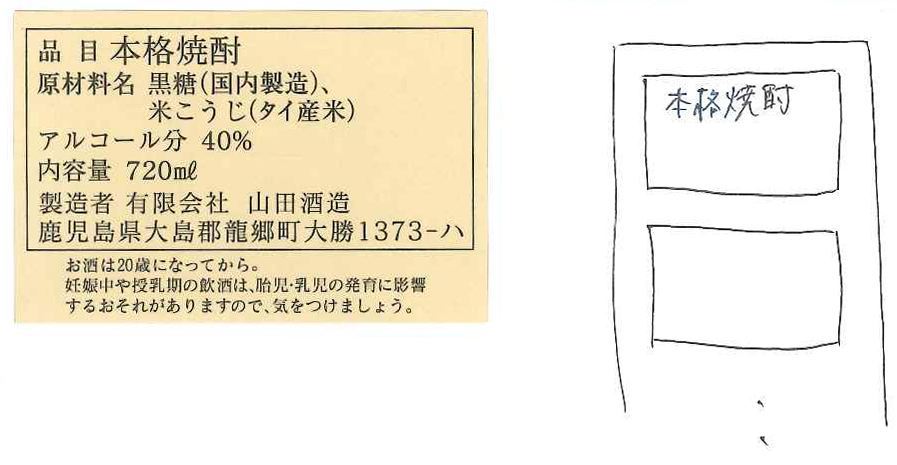 品 目 本格焼酎
原材料名 黒糖(国内製造)、
米こうじ(タイ産米)
アルコール分 40%
内容量 720㎖
製造者 有限会社 山田酒造
鹿児島県大島郡龍郷町大勝1373-ハ
お酒は20歳になってから。
妊娠中や授乳期の飲酒は、胎児・乳児の発育に影響
するおそれがありますので、気をつけましょう。
本格焼酎